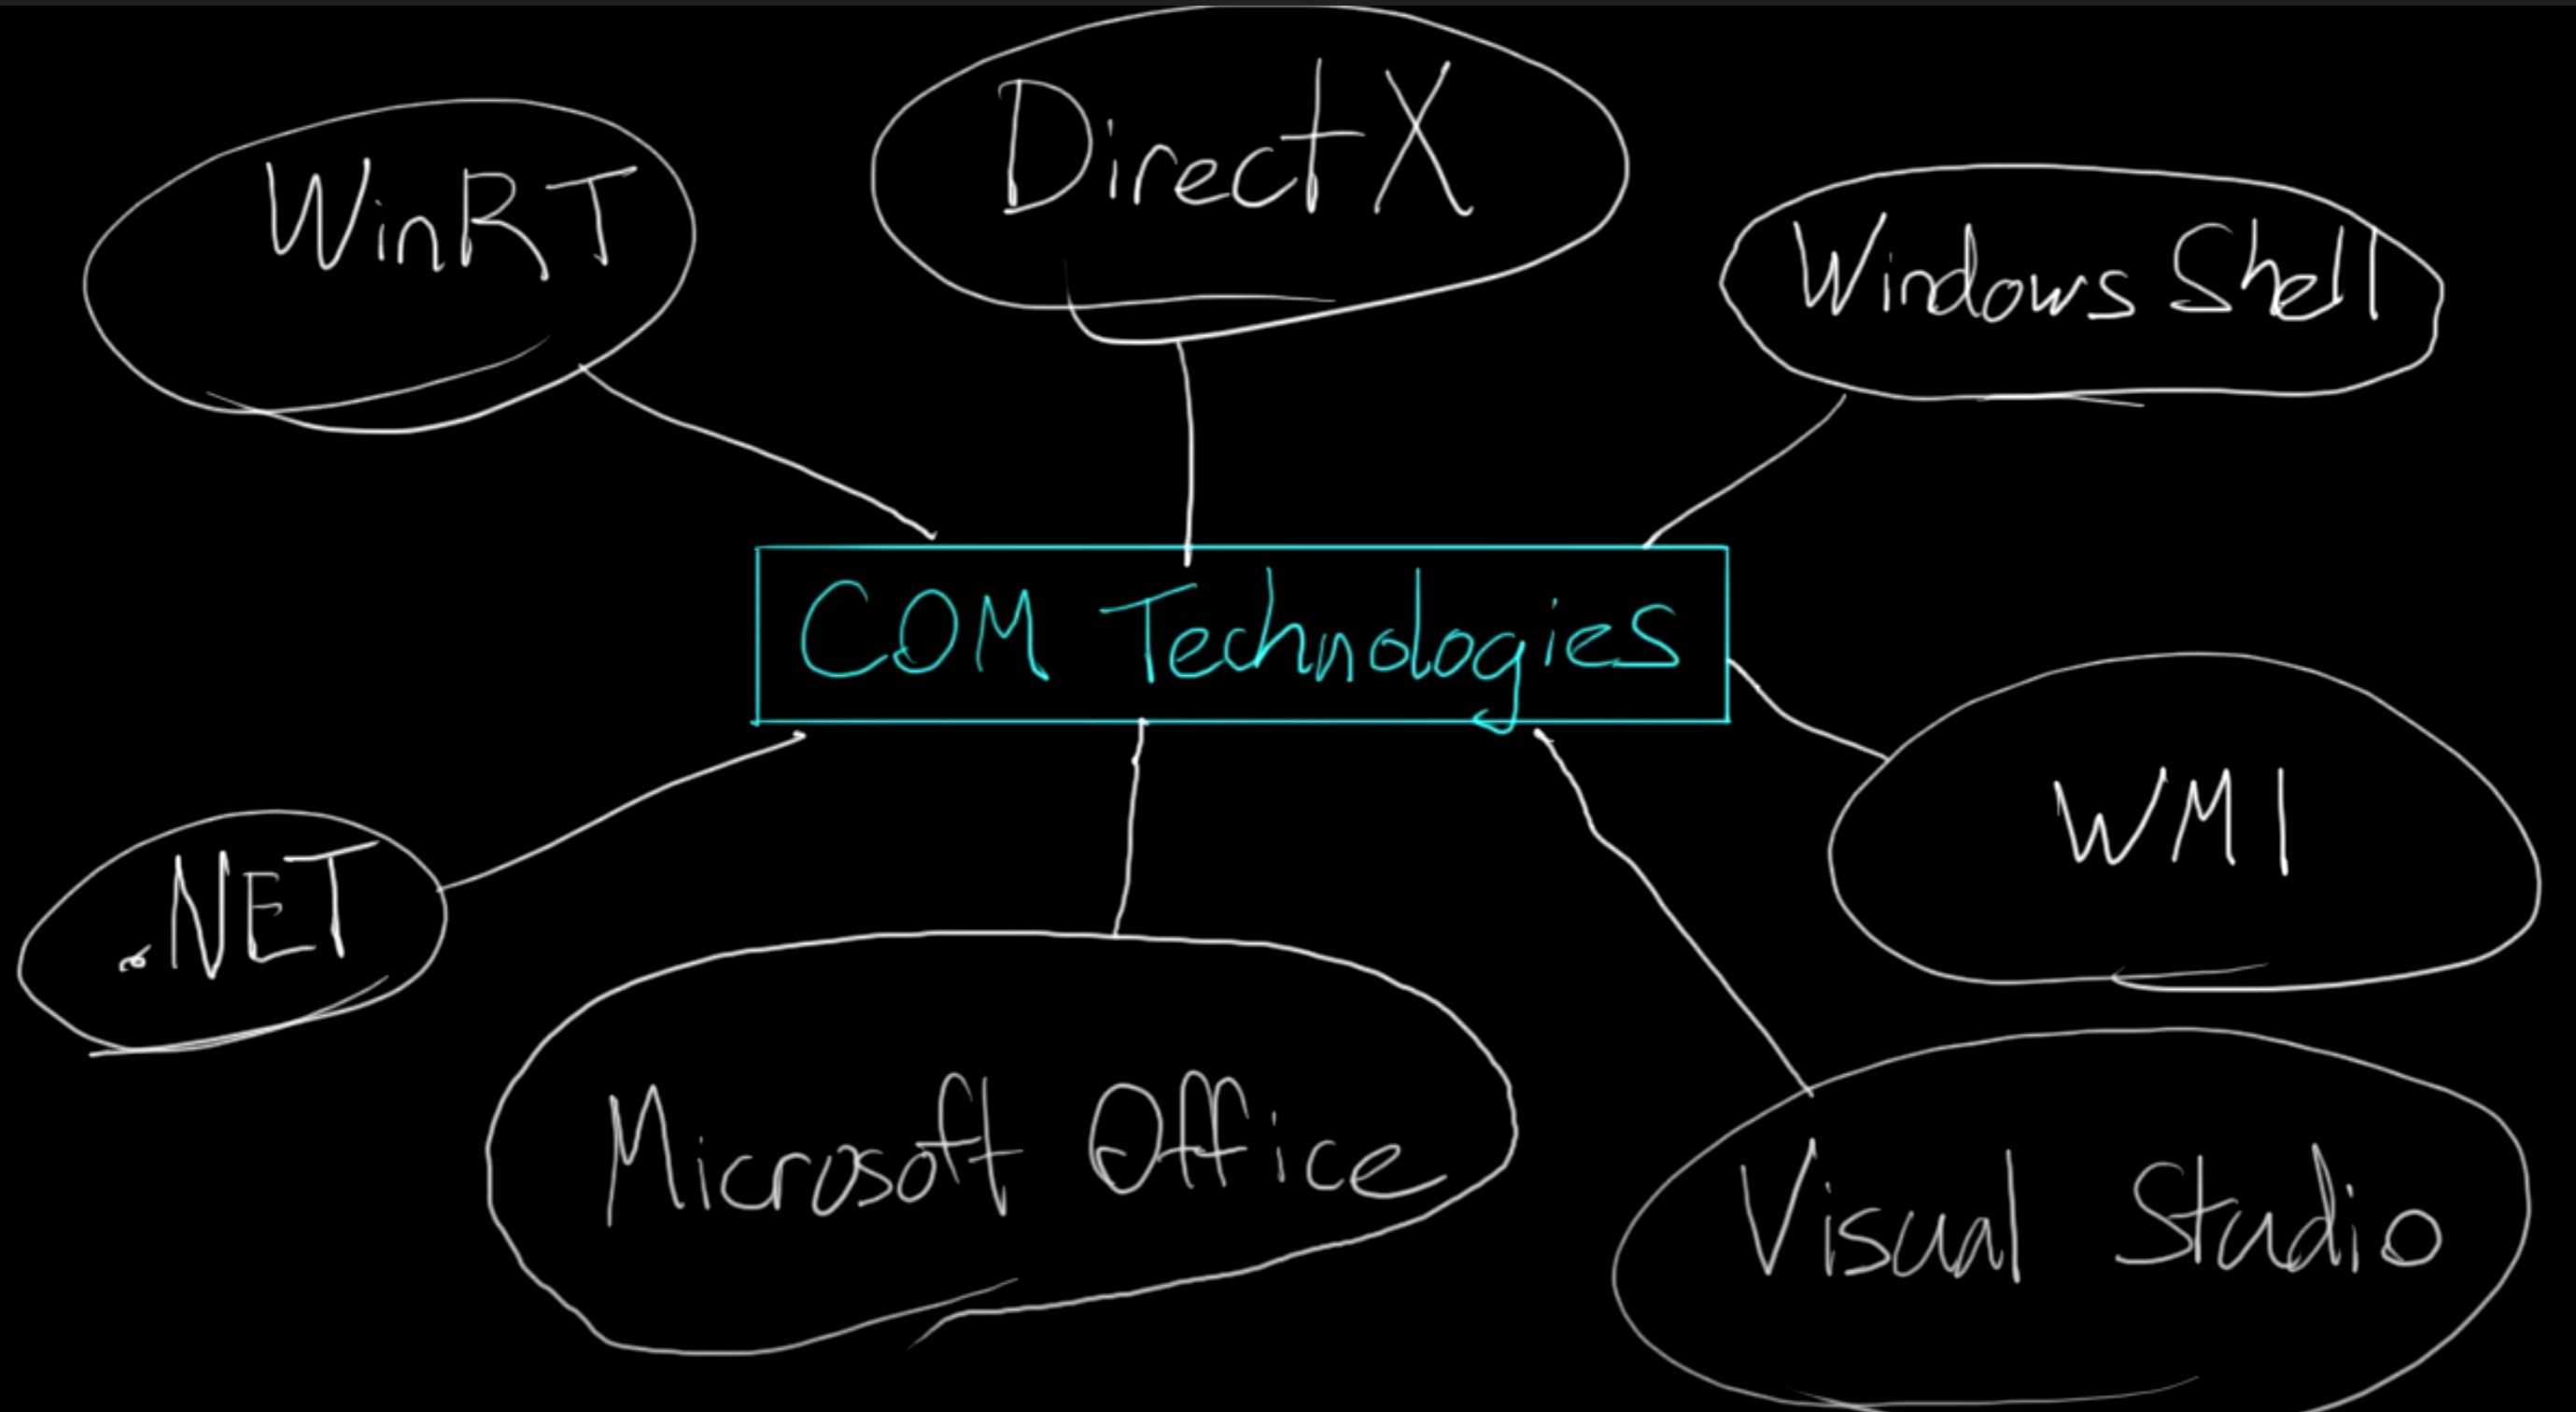 WinRT
DirectX
Windows Shell
COM Technologies
WMI
.NET
Microsoft Office
Visual Studio